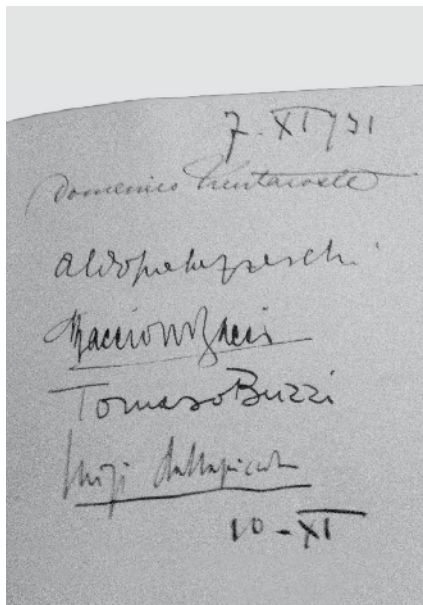 7 - XI 931
Domenico Trentacoste
Aldo Palazzeschi
Baccio M Bacci
Tomaso Buzzi
Luigi Dallapiccola
10 - XI